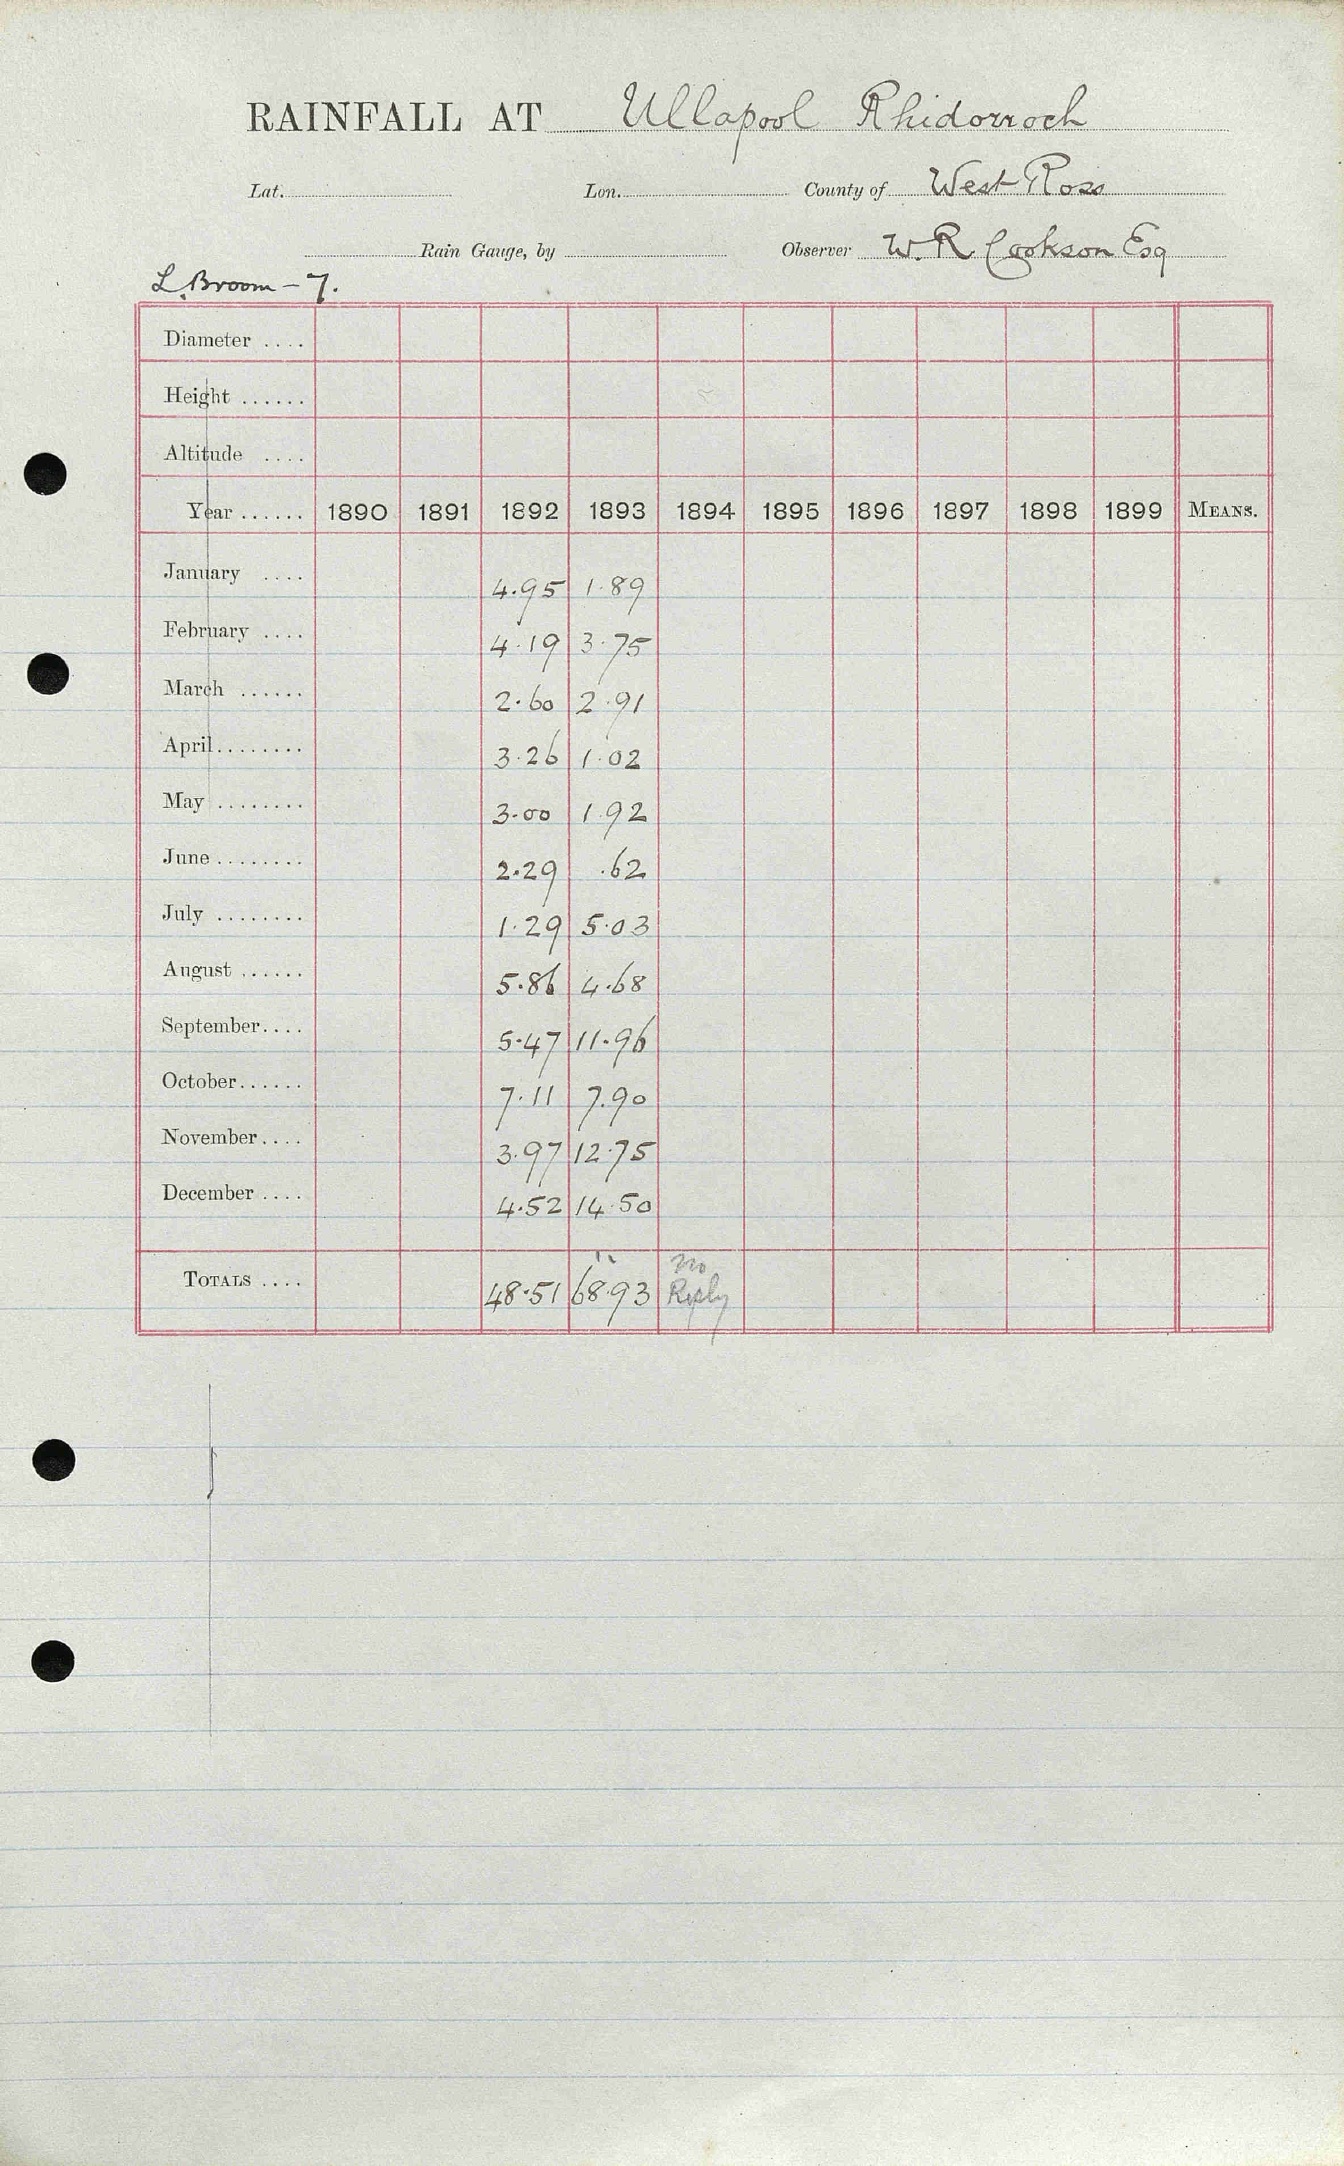 RAINFALL AT Ullapool Rhidorroch
Lat. Lon. County of West Ross
Rain Gauge, by Observer W. R. Cookson Esq
L. Broom - 7.
Diameter ....
Height ......
Altitude ....
Year ...... 1890 1891 1892 1893 1894 1895 1896 1897 1898 1899 MEANS.
January .... 4.95 1.89
February .... 4.19 3.75
March ...... 2.60 2.91
April........ 3.26 1.02
May ........ 3.00 1.92
June ........ 2.29 .62
July ........ 1.29 5.03
August ...... 5.86 4.68
September.... 5.47 11.96
October...... 7.11 7.90
November.... 3.97 12.75
December .... 4.52 14.50
TOTALS .... 48.51 68.93 No
Reply